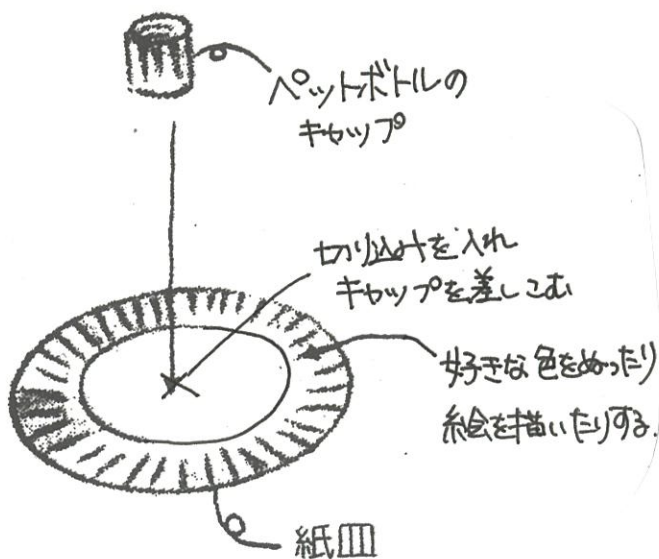 ペットボトルの
キャップ
切り込みを入れ
キャップを差しこむ
好きな色をぬったり
絵を描いたりする.
紙皿